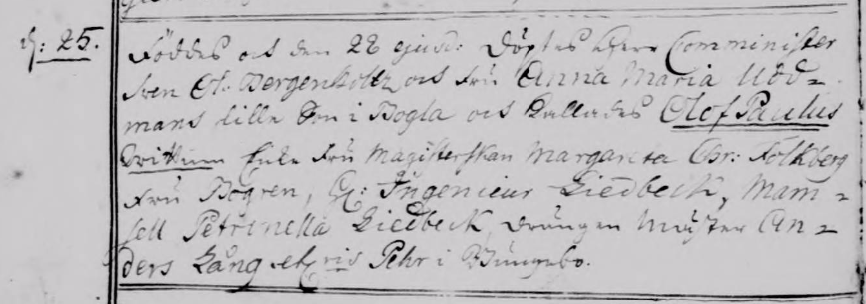 d: 25.
Föddes och den 28 ejusd: Döptes Herr Comminister
Sven Ol. Bergenholtz och Fru Anna Maria Nöd-
mans lille Son i Bogla och kallades Olof Paulus
Enke Fru Magisterskan Margareta Chr: Folkberg
Fru Bogren, H: Ingenieur Liedbeck, Mam-
sell Petrenella Liedbeck, Drängen Mäster An-
ders Lång et Pehr i